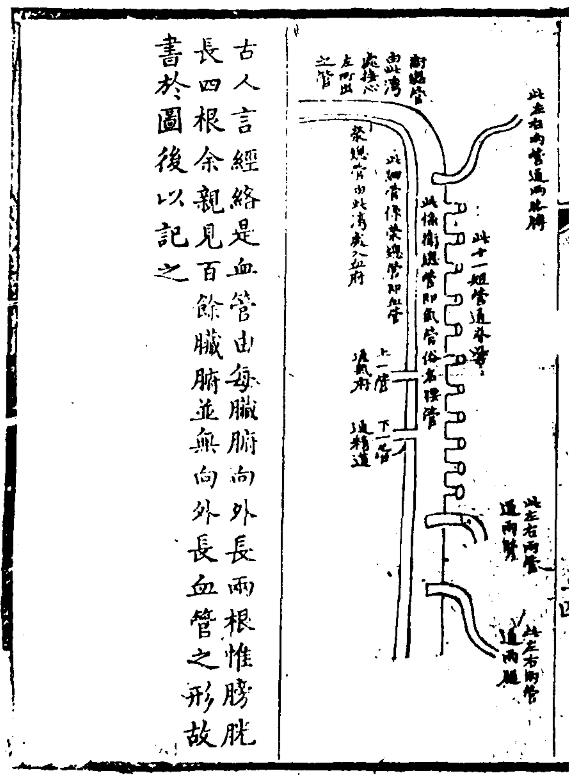 此左右兩管通兩肩膊
此十一短管通脊骨
此左右兩管
通兩腎
此左右兩管
通兩腿
衛總管
由此灣
處接心
左所出
之管
此係衛總管即氣管俗名腰管
此細管係榮總管即血管
榮總管由此灣處入血府
上一管
通氣府
下一管
通精道
古人言經絡是血管由每臟腑向外長兩根惟膀胱
長四根余親見百餘臟腑並無向外長血管之形故
書於圖後以記之